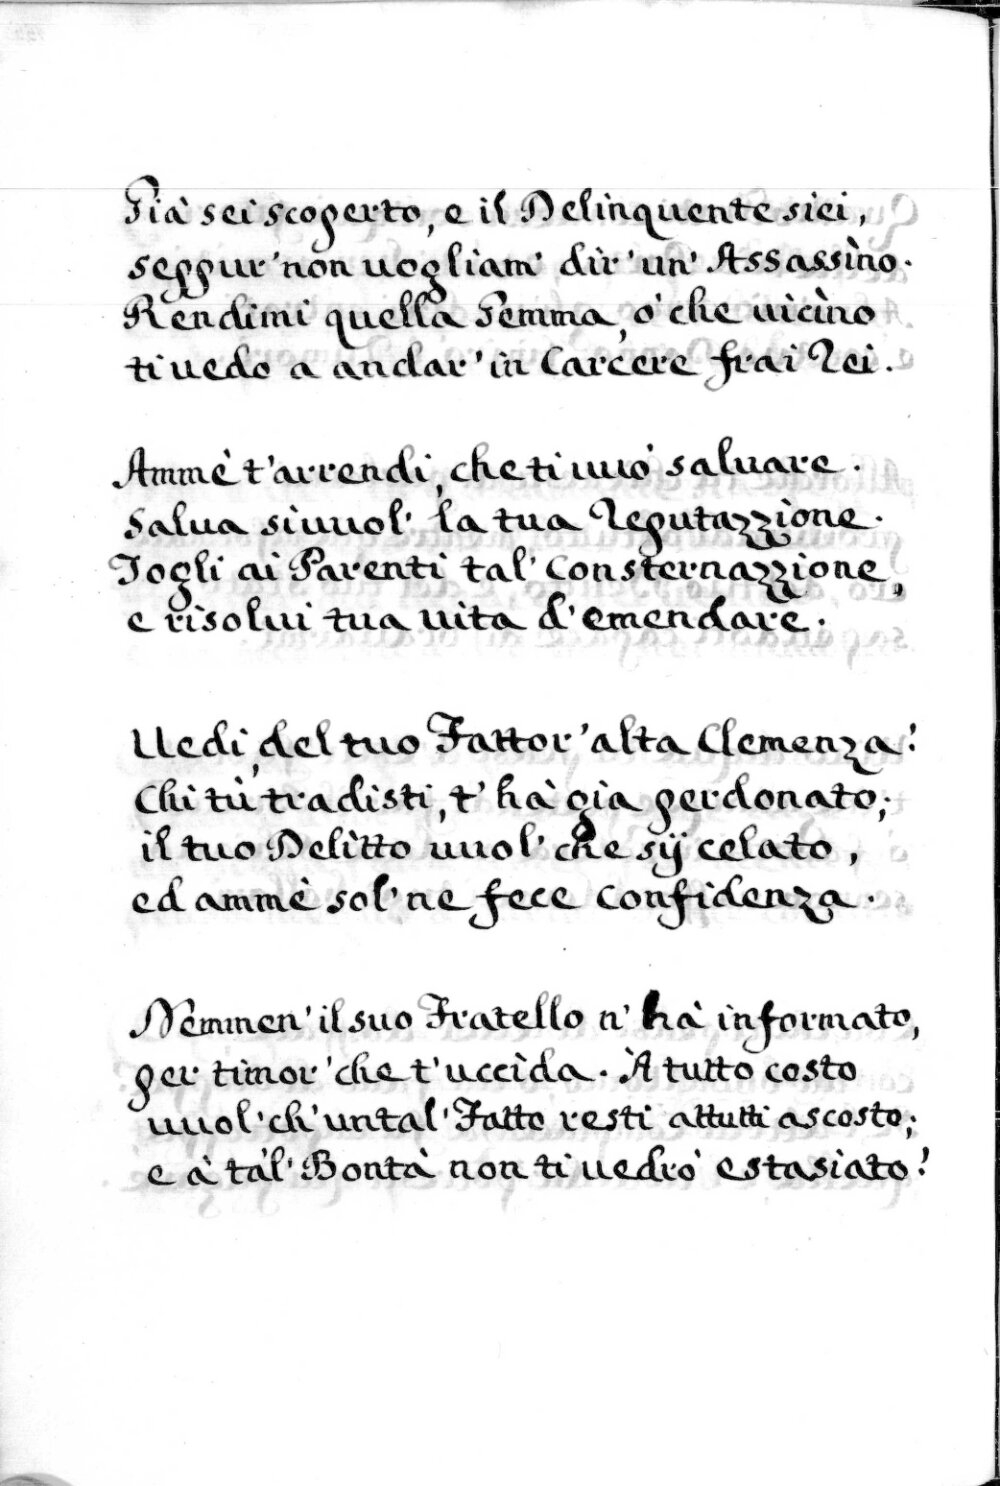 Già sei scoperto, e il Delinquente siei,
seppur' non uogliam' dir' un' Assassìno.
Rendimi quella Gemma, ò che uicìno
ti uedo a andar' in Carcere frai Rei.
Ammè t'arrendi, che ti uuò saluare.
Salua sì uuol' la tua Reputazzìone.
Togli ai Parenti tal' Consternazzione,
e risolui tua uita d'emendare.
Uedi, del tuo Fattor' alta Clemenza!
Chi tù tradisti, t' hà già perdonato;
il tuo Delìtto uuol' che sij celato,
ed ammè sol' ne fece Confidenza.
Nemmen' il suo Fratello n' hà informato,
per timor' che t'uccìda. À tutto costo
uuol' ch' untal' Fatto resti attutti ascosto;
e à tàl' Bontà non ti uedrò estasiato!